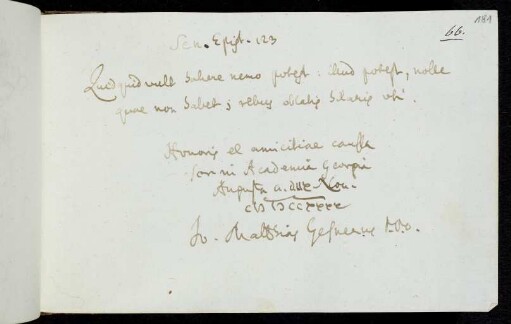 181
66.
Sen. Epist. 123
Quidquid vult habere nemo potest: illud potest, nolle
quae non habet; rebus oblatis hilaris uti.
Honoris et amicitiae caussa
in Academia Georgia
Augusta a. d. Nov.
CIƆ IƆCCXXXX
Jo. Matthias Gesnerus